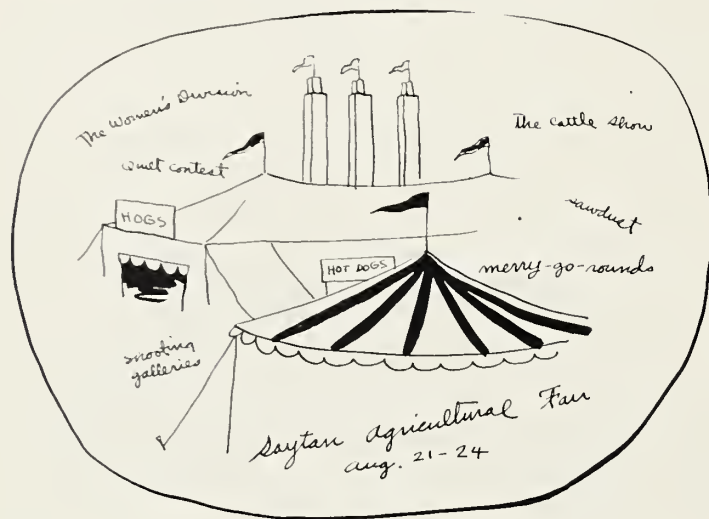 The Women's Division
Quilt contest
The cattle show
HOGS
sawdust
HOT DOGS
merry-go-rounds
shooting
galleries
Saytan Agricultural Fair
Aug. 21-24